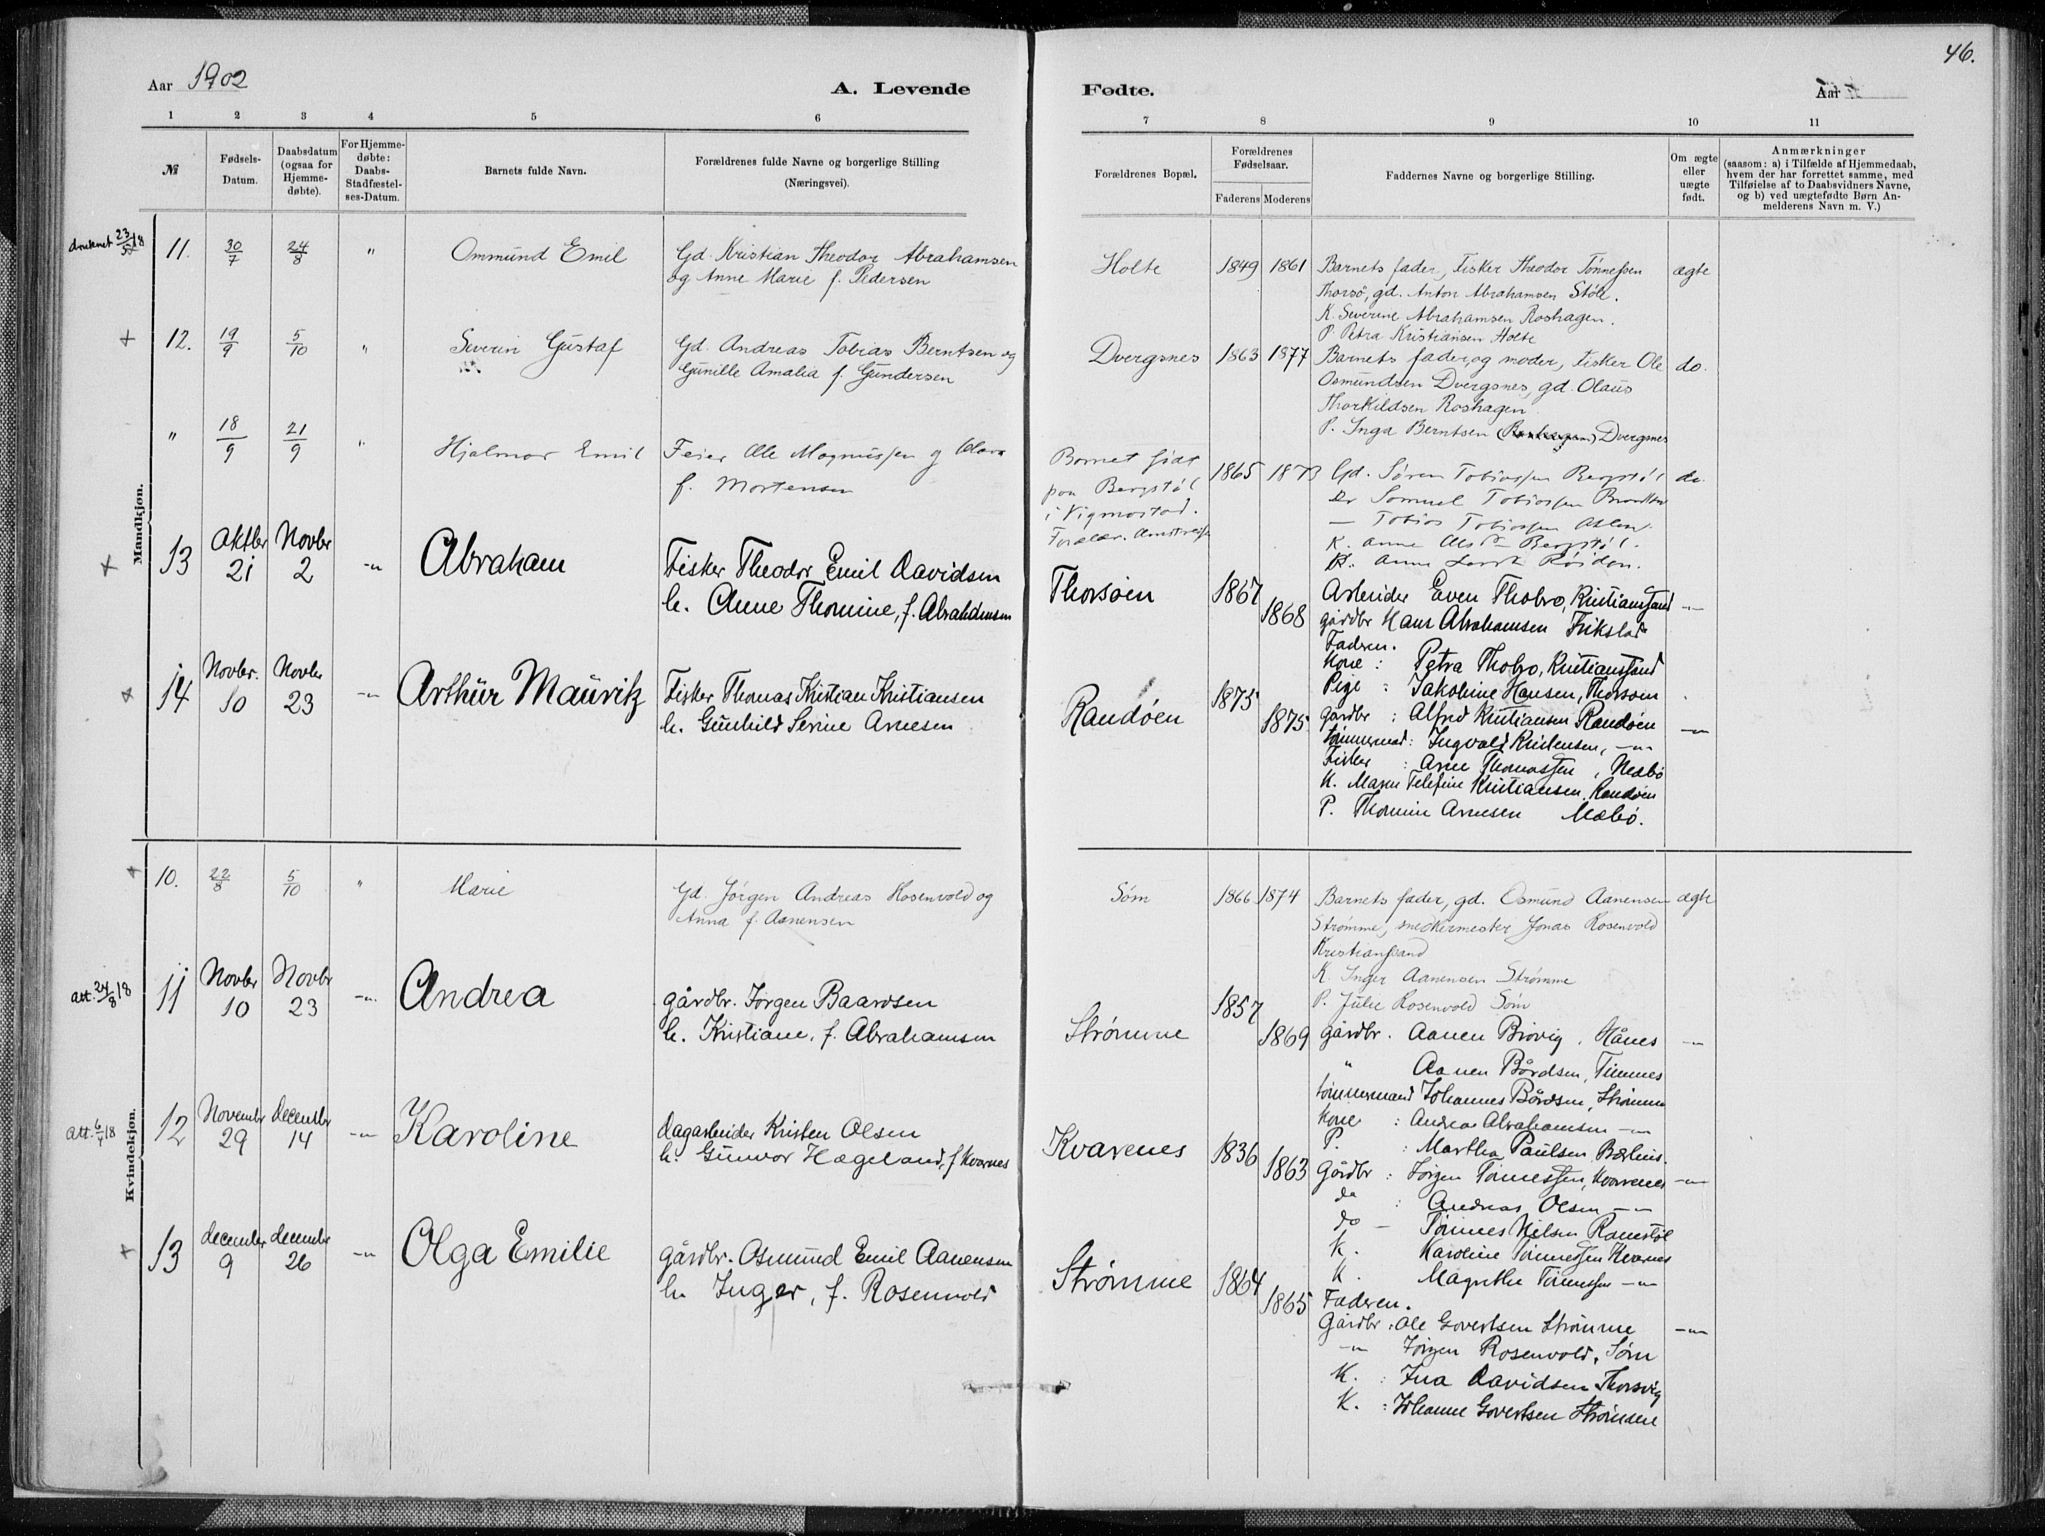 46.
Aar 1902
A. Levende
Fødte.
Aar
1 2 3 4 5 6 7 8 9 10 11
№
Fødsels-
Datum.
Daabsdatum
(ogsaa for
Hjemme-
døbte).
For Hjemme-
døbte:
Daabs-
Stadfæstel-
ses-Datum.
Barnets fulde Navn.
Forældrenes fulde Navne og borgerlige Stilling
(Næringsvei).
Forældrenes Bopæl.
Forældrenes
Fødselsaar.
Faderens Moderens
Faddernes Navne og borgerlige Stilling.
Om ægte
eller
uægte
født.
Anmærkninger
(saasom: a) i Tilfælde af Hjemmedaab,
hvem der har forrettet samme, med
Tilføielse af to Daabsvidners Navne,
og b) ved uægtefødte Børn An-
melderens Navn m. V.)
Mandkjøn.
druknet 23/5 18
11. 30/7 24/8 " Ommund Emil
Gd. Kristian Theodor Abrahamsen
og Anne Marie f. Pedersen
Holte 1849 1861
Barnets fader, Fisker Theodor Tønnessen
Thorsø, gd. Anton Abrahamsen Støle.
K. Severine Abrahamsen Roshagen.
P. Petra Kristiansen Holte
ægte
12. 19/9 5/10 " Severin Gustaf
Gd. Andreas Tobias Berntsen og
Gunille Amalia f. Gundersen
Dvergsnes 1863 1877
Barnets fader, og moder, Fisker Ole
Osmundsen Dvergsnes, gd. Olaus
Thorkildsen Roshagen.
P. Inga Berntsen Dvergsnes
do.
" 18/9 21/9 " Hjalmar Emil
Feier Ole Magnussen og Clara
f. Mortensen
Barnet født
paa Bergstøl
i Vigmostad.
1865 1873
Gd. Søren Tobiassen Bergstøl
Samuel Tobiassen
— Tobias Tobiassen
K. Anne Bergstøl.
Anne
do.
13 Oktbr 21 Novbr 2 -"- Abraham
Fisker Theodor Emil Davidsen
h. Anne Thomine, f. Abrahamsen
Thorsøen 1867 1868
Arbeider Even Thobro, Kristianssand
gårdbr Hans Abrahamsen Frikstad
Faderen.
Kone : Petra Thobro, Kristianssand
Pige : Jakobine Hansen, Thorsøen
-"-
14 Novbr. 10 Novbr 23 -"- Arthur Mauritz
Fisker Thomas Kristian Kristiansen
h. Gunhild Serine Arnesen
Randøen 1875 1875
Gårdbr : Alfred Kristiansen Randøen
tømmermd: Ingvald Kristensen, -"-
Fisker : Arne Thomassen, Mæbø
K. Maren Telefine Kristiansen Randøen
P. Thomine Arnesen Mæbø.
-"-
Kvindekjøn.
10. 22/8 5/10 " Marie
Gd. Jørgen Andreas Rosenvold og
Anna f. Aanensen
Søm 1866 1874
Barnets fader, gd. Osmund Aanensen
Strømme, snedkermester Jonas Rosenvold
Kristianssand
K. Inger Aanensen Strømme
P. Julie Rosenvold Søm
ægte
Att. 24/8 18
11 Novbr 10 Novbr 23 -"- Andrea
gårdbr. Jørgen Baardsen
h. Kristiane, f. Abrahamsen
Strømme 1857 1869
gårdbr. Aanen Brøvig, Hånes
" Aanen Bårdsen, Timmes
tømmermand Johannes Bårdsen, Strømme
Kone : Andrea Abrahamsen -"-
P. : Martha Paulsen
-"-
Att. 6/7 18
12 November 29 december 14 -"- Karoline
dagarbeider Kristen Olsen
h. Gunvor Hægeland, f Kvarnes
Kvarenes 1836 1863
Gårdbr : Jørgen Tønnessen, Kvarenes
do : Andreas Olsen -"-
do - Tønnes Nilsen
K. Karoline Tønnessen Kvarnes
K. Magrethe Tønnessen -"-
-"-
13 december 9 decembr 26 -"- Olga Emilie
gårdbr. Osmund Emil Aanensen
h. Inger, f. Rosenvold
Strømme 1864 1865
Faderen.
Gårdbr : Ole Govertsen Strømme
-"- Jørgen Rosenvold, Søm
K. : Ina Davidsen Thorsvig
K. : Johanne Govertsen Strømme
-"-